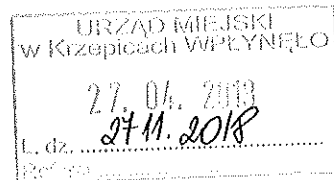 URZĄD MIEJSKI
w Krzepicach WPŁYNĘŁO
27. 04. 2018
L. dz. 2711. 2018